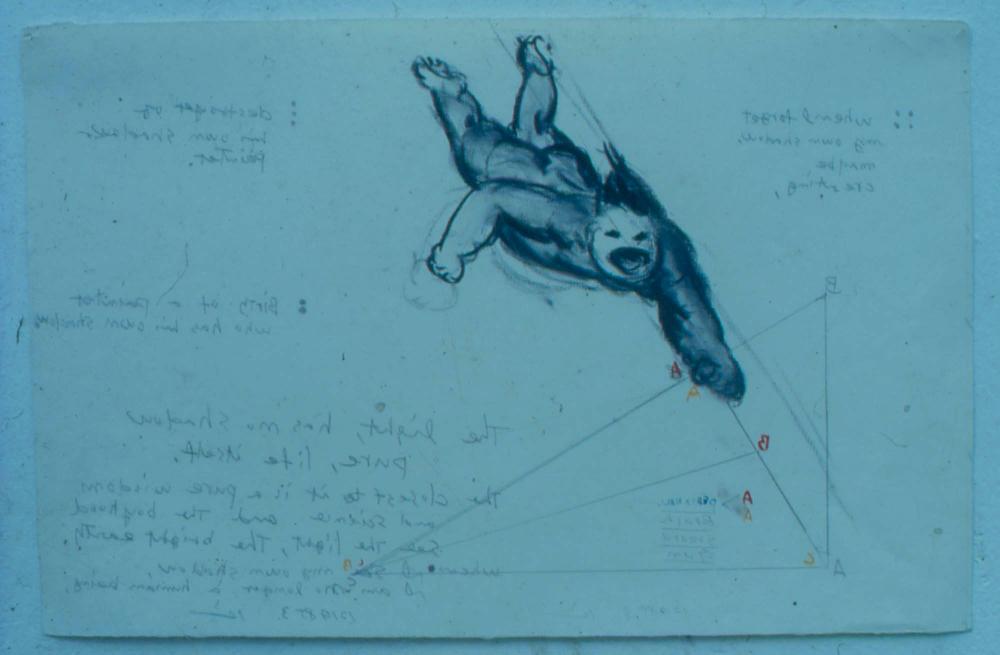 when I forget
my own shadow,
maybe
destroyer of
his own shadows
painter.
Birth of a painter
who has his own shadow
B
A
A
B
A
A
C
A
B
The light, has no shadow
pure, life itself.
The closest to it is a pure wisdom
and science. and The boyhood
see The light, The bright earth.
when I see my own shadow,
I am no longer a human being.